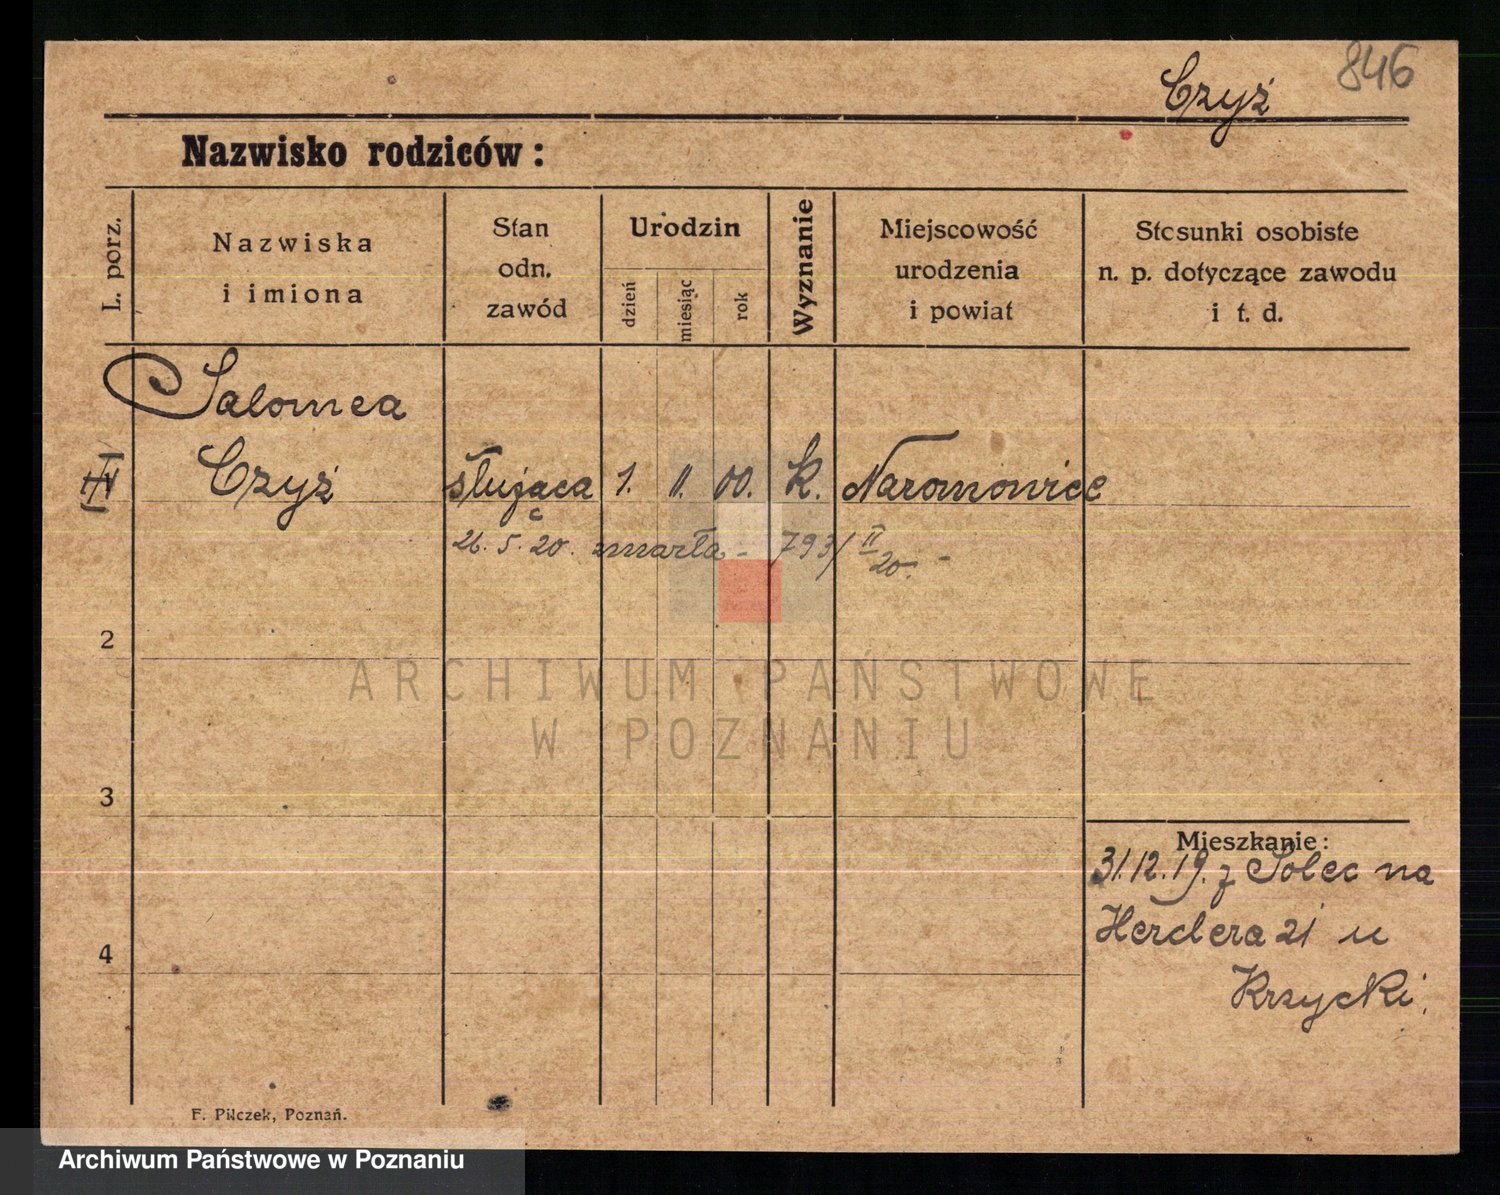 846
Czyż
Nazwisko rodziców:
L. porz.
Nazwiska
i imiona
Stan
odn.
zawód
Urodzin
dzień
miesiąc
rok
Wyznanie
Miejscowość
urodzenia
i powiat
Stosunki osobiste
n. p. dotyczące zawodu
i t. d.
Salomea
Czyż służąca 1. II. 00. k. Naramowice
26. 5. 20. zmarła - 793/ II 20. -
2
3
4
Mieszkanie:
31.12.19. z Solec na
Herdera 21 u
Krzycki.
F. Pilczek, Poznań.
ARCHIWUM PAŃSTWOWE
W POZNANIU
Archiwum Państwowe w Poznaniu